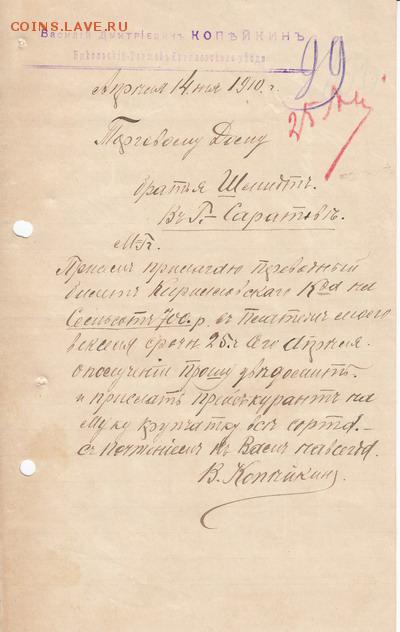 COINS.LAVE.RU
Василій Дмитріевичъ КОПѢЙКИНЪ
99
Апреля 14 дня 1910 г.
25 Ап
Торговому Дому
братья Шмидтъ.
Въ Г. Саратовъ.
М.Г.
При семъ прилагаю Переводный
билетъ Кирилловскаго К-ва на
Семьсотъ 700 р. въ моего
векселя срочн 25го Сего Апреля.
о получении Прошу уведомить
и прислать Преискурантъ на
муку крупчатку все сорта.
съ Почтениемъ къ Вамъ навсегда.
В. Копѣйкинъ